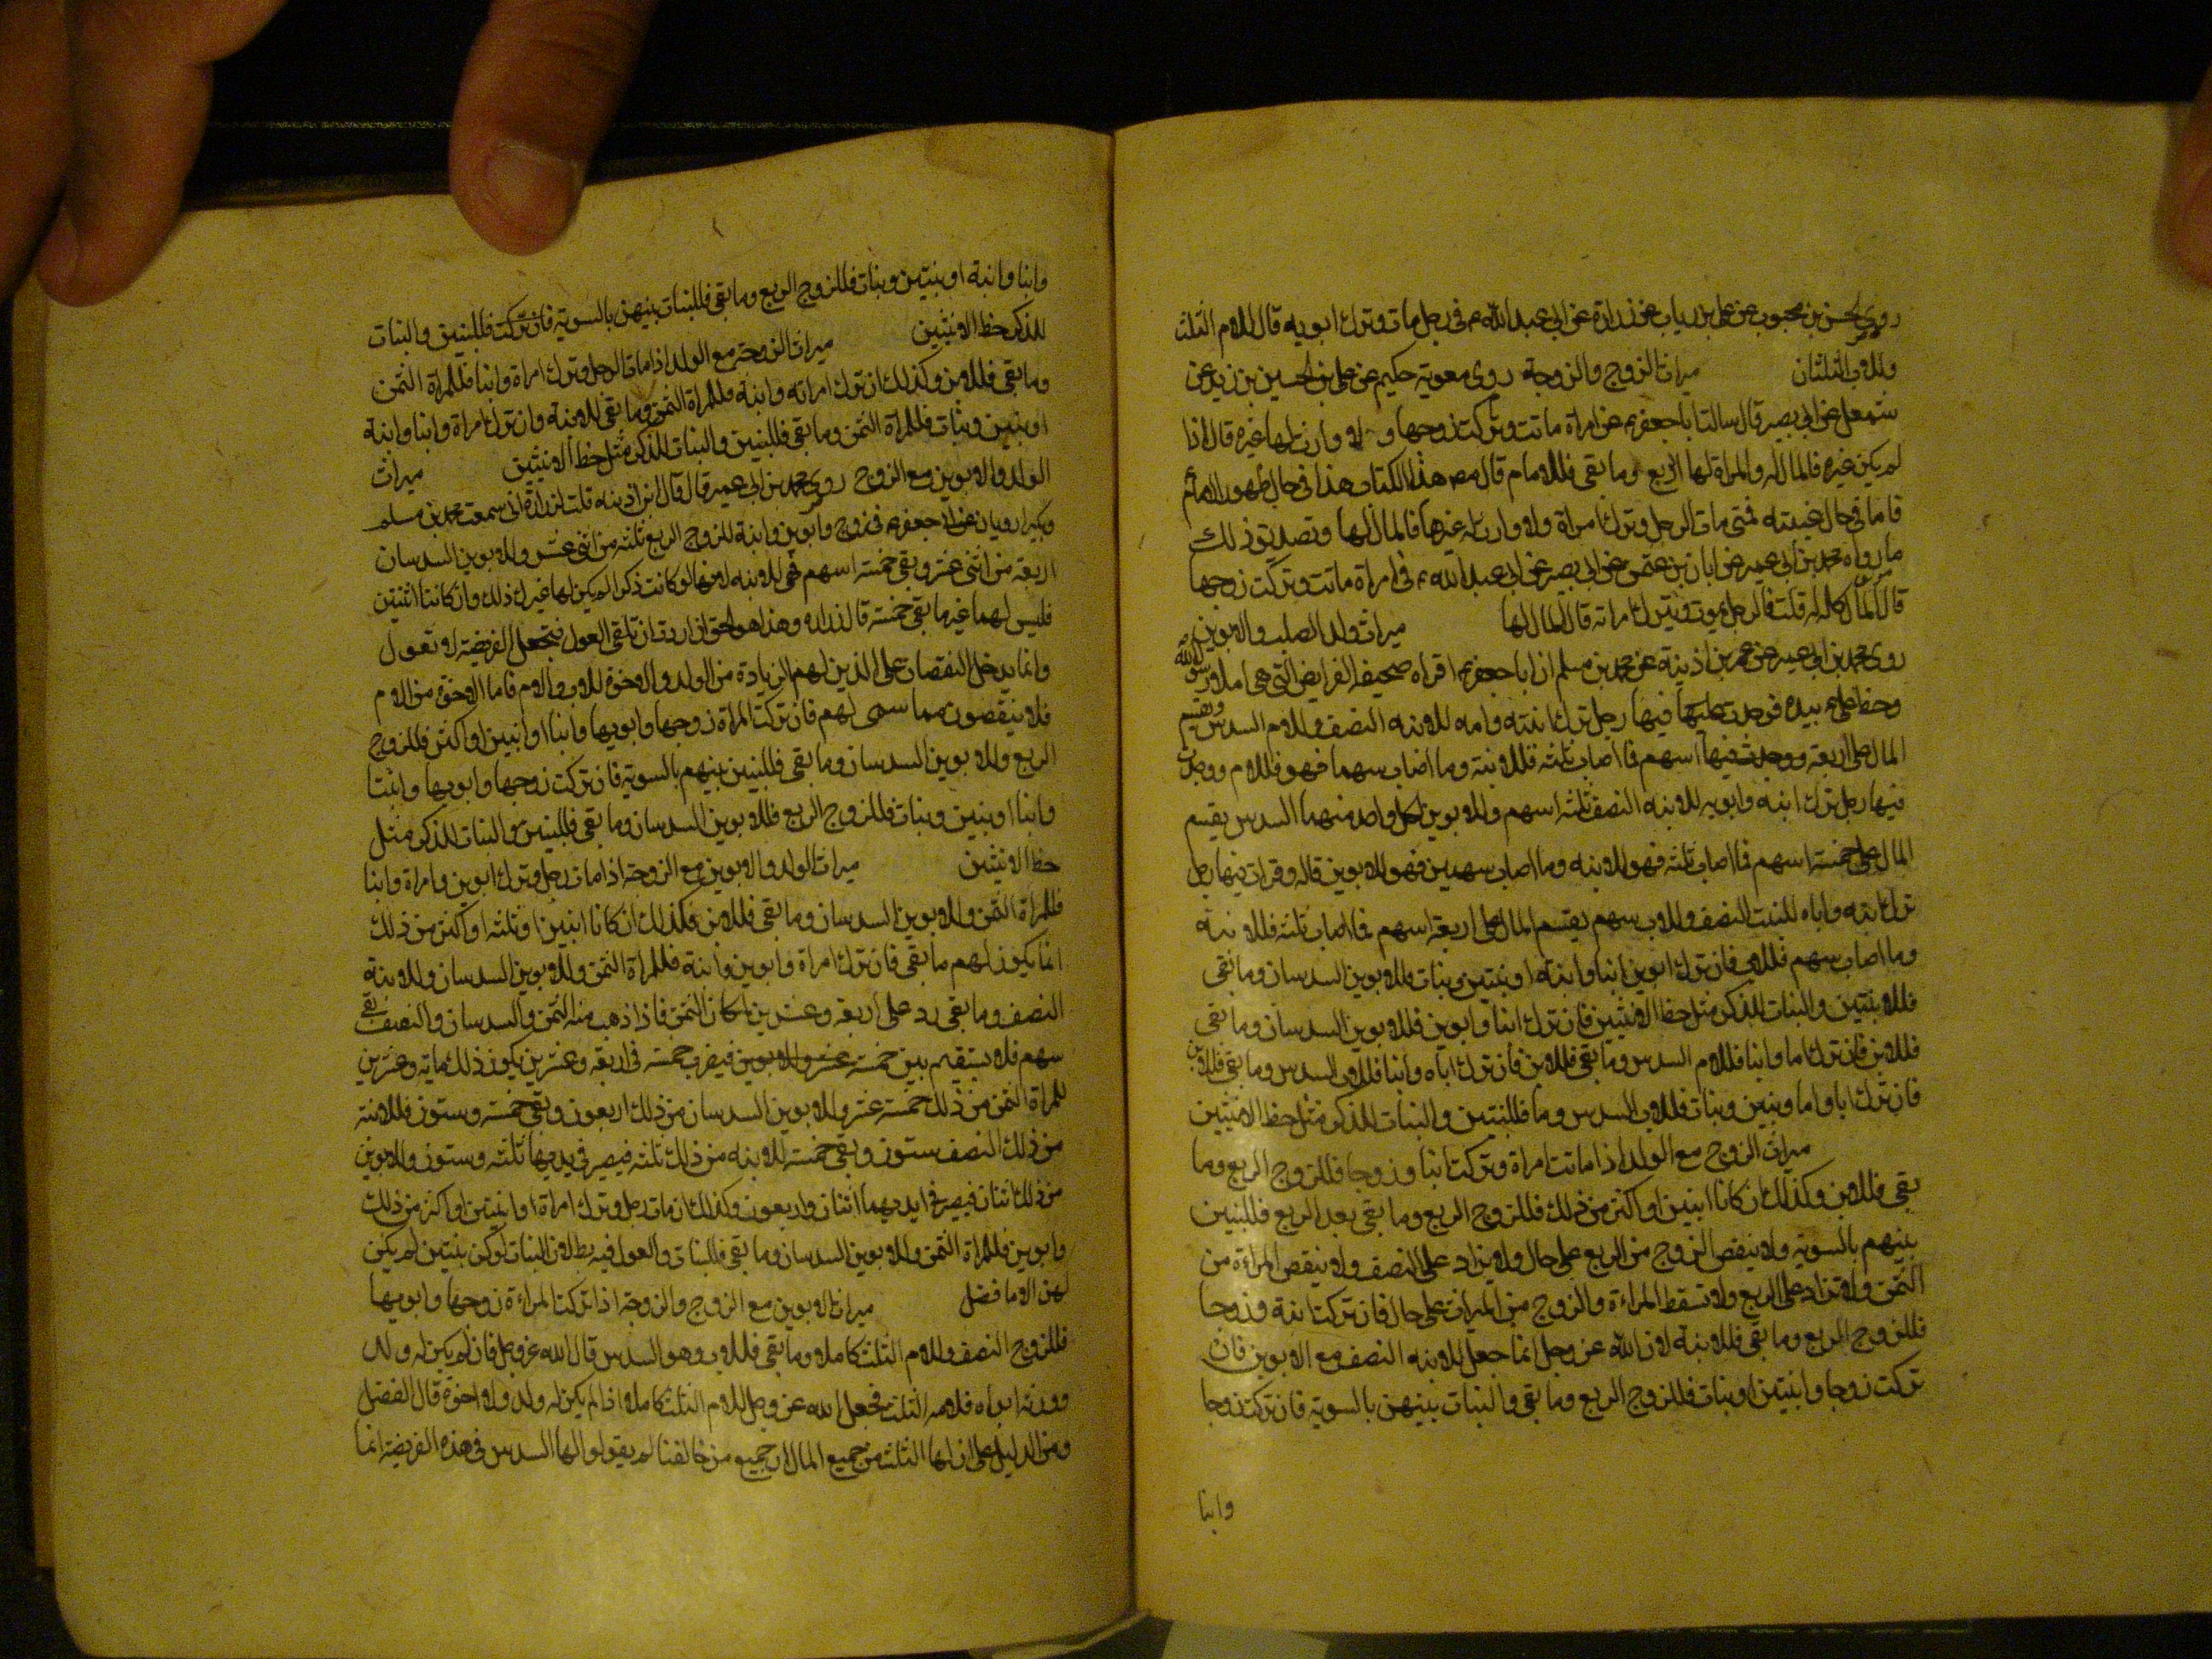 روى الحسن بن محبوب عن على بن رياب عن زرارة عن ابى عبد الله ع م فى رجل مات وترك ابويه قال للام الثلث
وللاب الثلثان ميراث الزوج والزوجة روى معوية حكيم عن على بن الحسين بن زيد عن
مشمعل عن ابى بصير قال سالت ابا جعفر ع م عن امراة ماتت وتركت زوجها ولا وارث لها غيره قال اذا
لم يكن غيره فالمال له والمراة لها الربع وما بقى فللامام قال مص هذا الكتاب هذا فى حال ظهور الامام
فاما فى حال غيبته فمتى مات الرجل وترك امراة ولا وارث له غيرها فالمال لها وتصديق ذلك
ما رواه محمد بن ابى عمير عن ابان بن عثمن عن ابى بصير عن ابى عبد الله ع م فى امراة ماتت وتركت زوجها
قال المال كله له قلت فالرجل يموت ويترك امراته قال المال لها ميراث ولد الصلب والابوين
روى محمد بن ابى عمير عن عمر بن اذينة عن محمد بن مسلم ان ابا جعفر ع م اقراه صحيفه الفرايض التى هى املاء رسول الله ص
وخط على ع م بيده فوجدت فيها رجل ترك ابنته وامه للابنه النصف وللام السدس ويقسم
المال على اربعة ووجدت فيها اسهم فما اصاب ثلثه فللابنته وما اصاب سهما فهو للام ووجدت
فيها رجل ترك ابنه وابويه للابنه النصف ثلثه اسهم وللابوين لكل واحد منهما السدس يقسم
المال على خمسته اسهم فما اصاب ثلثه فهو للابنه وما اصاب سهمين فهو للابوين قال وقرات فيها رجل
ترك ابنته واباه للبنت النصف وللاب سهم يقسم المال على اربعه اسهم فما اصاب ثلثه فللابنته
وما اصاب سهم فللاب فان ترك ابوين ابنا وابنه او بنتين وبنات فللابوين السدسان وما بقى
فللابنتين والبنات للذكر مثل حظ الانثيين فان ترك ابنا وابوين فللابوين السدسان وما بقى
فللابن فان ترك اما وابنا فللام السدس وما بقى فللابن فان ترك اباه وابنا فللاب السدس وما بقى فللابن
فان ترك ابا واما وبنين وبنات فللاب السدس وما فللبنين والبنات للذكر مثل حظ الانثيين
ميراث الزوج مع الولد اذا ماتت امراة وتركت ابنا وزوجا فللزوج الربع وما
بقى فللابن وكذلك ان كانا ابنين او اكثر من ذلك فللزوج الربع وما بقى بعد الربع فللبنين
بينهم بالسويه ولا ينقص الزوج من الربع على حال ولا يزاد على النصف ولا ينقص المراءة من
الثمن ولا تزاد على الربع ولا تسقط المراءة والزوج من الميراث على حال فان تركت ابنة وزوجا
فللزوج الربع وما بقى فللابنة لان الله عز وجل انما جعل للابنه النصف مع الابوين فان
تركت زوجا وابنتين او بنات فللزوج الربع وما بقى والبنات بينهن بالسويه فان تركت زوجا
وابنا
وابنا وابنة او بنتين وبنات فللزوج الربع وما بقى فللبنات بينهن بالسويه فان تركت فللبنين والبنات
للذكر حظ الانثيين ميراث الزوجة مع الولد اذا مات الرجل وترك امراة وابنا فللمراة الثمن
وما بقى فللابن وكذلك ان ترك امراته وابنة فللمراة الثمن وما بقى للابنة وان ترك امراة وابنا وابنة
او بنين وبنات فللمراة الثمن وما بقى فللبنين والبنات للذكر مثل حظ الانثيين ميراث
الولد والابوين مع الزوج روى محمد بن ابى عمير قال قال ابن اذينه قلت لزرارة انى سمعت محمد بن مسلم
وبكير يرويان عن ابى جعفر ع م فى زوج وابوين وابنة للزوج الربع ثلثه من اثنى عشر وللابوين السدسان
اربعه من اثنى عشر وبقى خمسته اسهم فهى للابنه لانها لو كانت ذكرا لم يكن لها غير ذلك وان كانتا اثنتين
فليس لهما غير ما بقى خمسته قال زرارة وهذا هو الحق ان اردت ان تلقى العول فتجعل الفريضه لا تعول
وانما يدخل النقصان على الذين لهم الزيادة من الولد والاخوة للاب والام فاما الاخوة من الام
فلا ينقصون مما سمى لهم فان تركت المراة زوجها وابويها وابنا او ابنين او اكثر فللزوج
الربع وللابوين السدسان وما بقى فللبنين بينهم بالسويه فان تركت زوجها وابويها وابنتا
وابنا او بنين وبنات فللزوج الربع فللابوين السدسان وما بقى فللبنين والبنات للذكر مثل
حظ الانثيين ميراث الولد والابوين مع الزوجة اذا مات رجل وترك ابوين وامراة وابنا
فللمراة الثمن وللابوين السدسان وما بقى فللابن فكذلك ان كانا ابنين او ثلثه او اكثر من ذلك
انما يكون لهم ما بقى فان ترك امراة وابوين وابنة فللمراة الثمن وللابوين السدسان وللابنة
النصف وما بقى رد على اربعه وعشرين لمكان الثمن فاذا ذهب منه الثمن والسدسان والنصف بقى
سهم فلا يستقيم بين خمسة عشر وللابوين فيضرب خمسته فى اربعه وعشرين يكون ذلك مايه وعشرين
للمراة الثمن من ذلك خمسته عشر وللابوين السدسان من ذلك اربعون وبقى خمسته وستون فللابنة
من ذلك النصف ستون وبقى خمسته للابنه من ذلك ثلثه فيصير فى يديها ثلثه وستون وللابوين
من ذلك اثنان فيصير فى ايديهما اثنان واربعون وكذلك ان مات رجل وترك امراة او ابنتين او اكثر من ذلك
وابوين فللمراة الثمن وللابوين السدسان وما بقى فللبنات والعول فيه بطل لان البنات لو كن بنين لم يكن
لهن الا ما فضل ميراث الابوين مع الزوج والزوجة اذا تركت المراءة زوجها وابويها
فللزوج النصف وللام الثلث كاملا وما بقى فللاب وهو السدس قال الله عز وجل فان لم يكن له ولد
وورثه ابواه فلامه الثلث فجعل الله عز وجل للام الثلث كاملا اذا لم يكن له ولد ولا اخوة قال الفضل
ومن الدليل على ان لها الثلث من جميع المال ان جميع من خالفنا لم يقولوا لها السدس فى هذه الفريضه انما